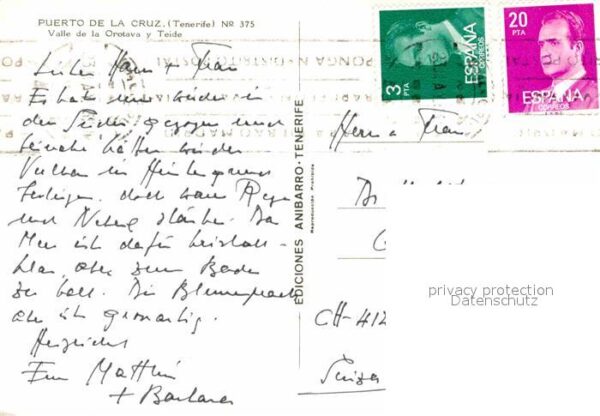 PUERTO DE LA CRUZ, (Tenerife) Nº 375
Valle de la Orotava y Teide
Lieber Hans + Frau
Es hat uns wieder in
den Süden gezogen und
beinahe hätten wir den
Vulkan im Hintergrund
bestiegen, doch war Regen
und Nebel stärker. Das
Meer ist dafür
klar, aber zum Baden
zu kalt. Die Blumenpracht
aber ist grossartig.
Herzlichst
Eure Matthias
+ Barbara
EDICIONES ANIBARRO-TENERIFE
Reproducción Prohibida
3
PTA
ESPAÑA
CORREOS
20
PTA
ESPAÑA
CORREOS
Herrn + Frau
Dr
CH-412
Suiza
privacy protection
Datenschutz